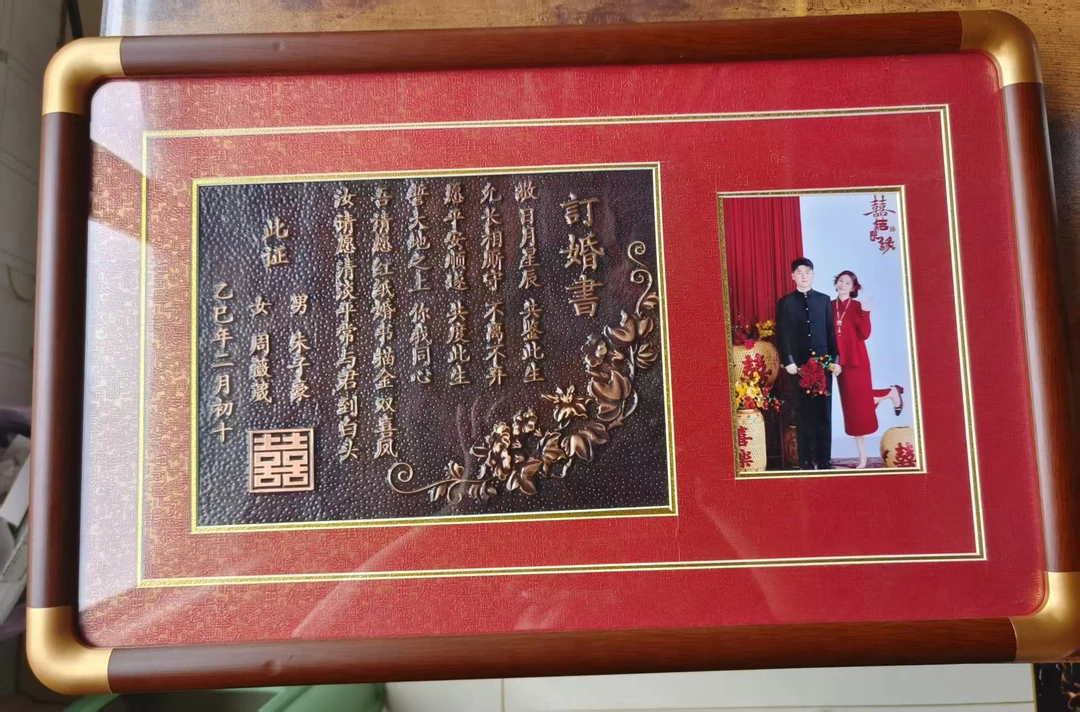 訂婚書
敬日月星辰 共鉴此生
允长相厮守 不离不弃
愿平安顺遂 共度此生
誓天地之上 你我同心
吾请愿 红纸婚书描金 双喜凤
汝请愿清淡平常与君到白头
此证
男 朱子豪
女 周薇葳
乙巳年二月初十
囍
囍
结良缘
囍
喜樂
囍